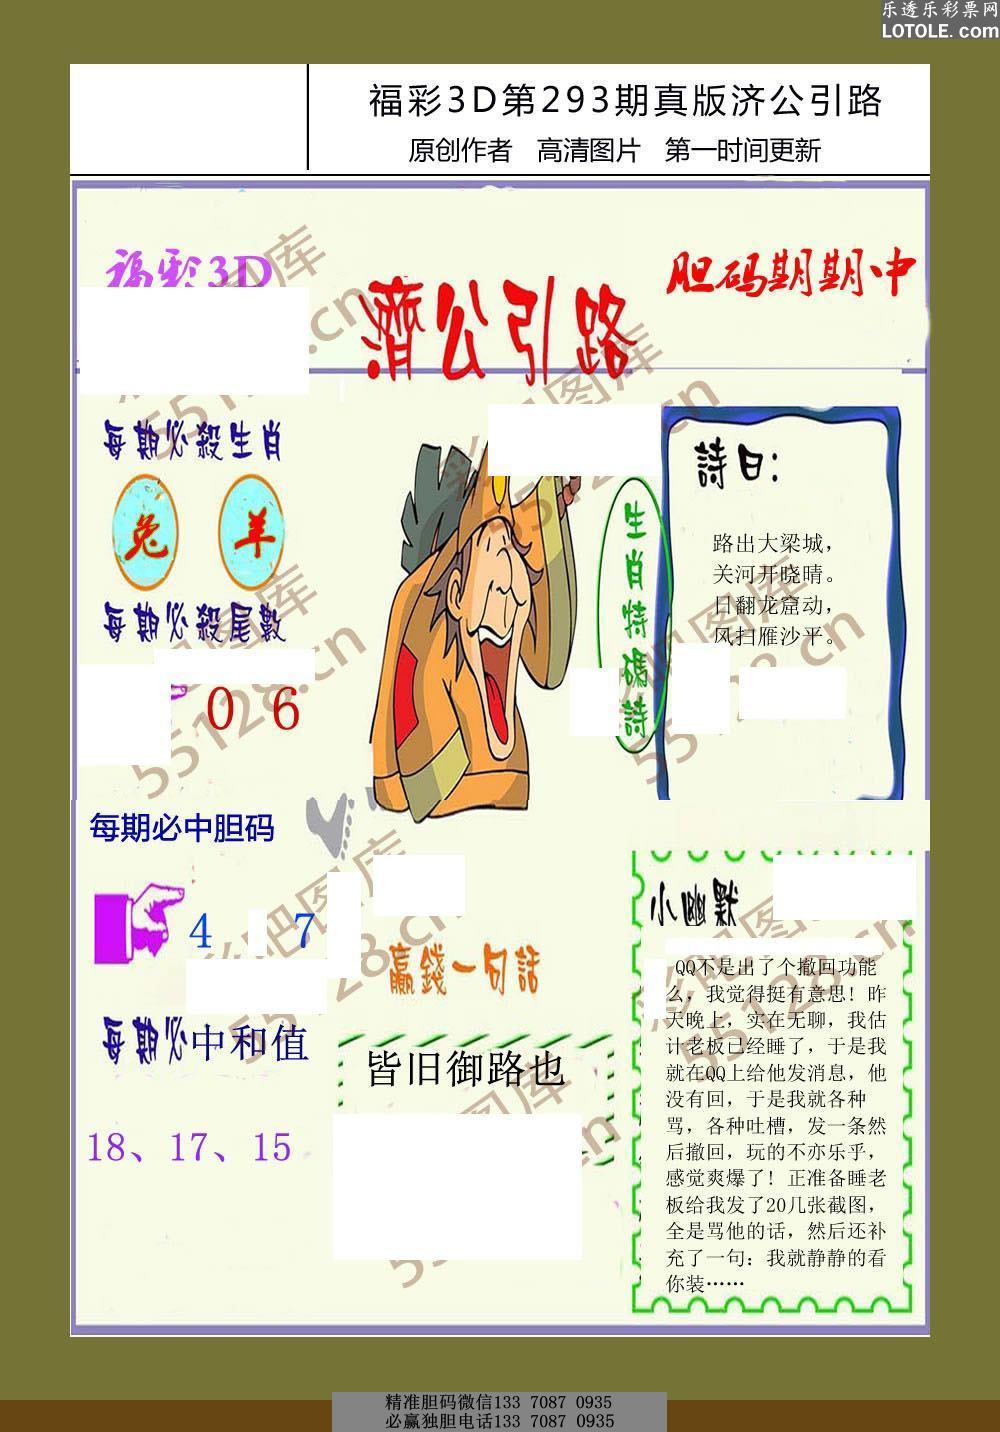 乐透乐彩票网
LOTOLE.com
福彩3D第293期真版济公引路
原创作者 高清图片 第一时间更新
福彩3D
濟公引路
胆码期期中
每期必殺生肖
兔 羊
每期必殺尾數
0 6
生肖特碼詩
詩曰：
路出大梁城，
关河开晓晴。
日翻龙窟动，
风扫雁沙平。
每期必中胆码
4 7
每期必中和值
18、17、15
贏錢一句話
皆旧御路也
小幽默
QQ不是出了个撤回功能
么，我觉得挺有意思！昨
天晚上，实在无聊，我估
计老板已经睡了，于是我
就在QQ上给他发消息，他
没有回，于是我就各种
骂，各种吐槽，发一条然
后撤回，玩的不亦乐乎，
感觉爽爆了！正准备睡老
板给我发了20几张截图，
全是骂他的话，然后还补
充了一句：我就静静的看
你装……
彩吧图库
55128.cn
精准胆码微信133 7087 0935
必赢独胆电话133 7087 0935